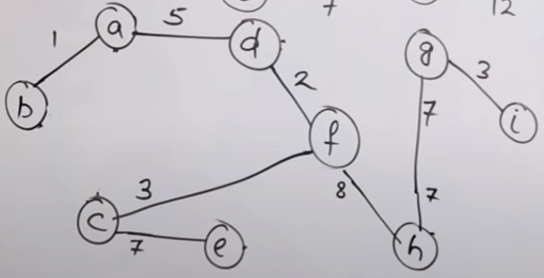 7 12
1 a 5 d g 3
b 2 7 i
f
3 8 7
c 7 e h